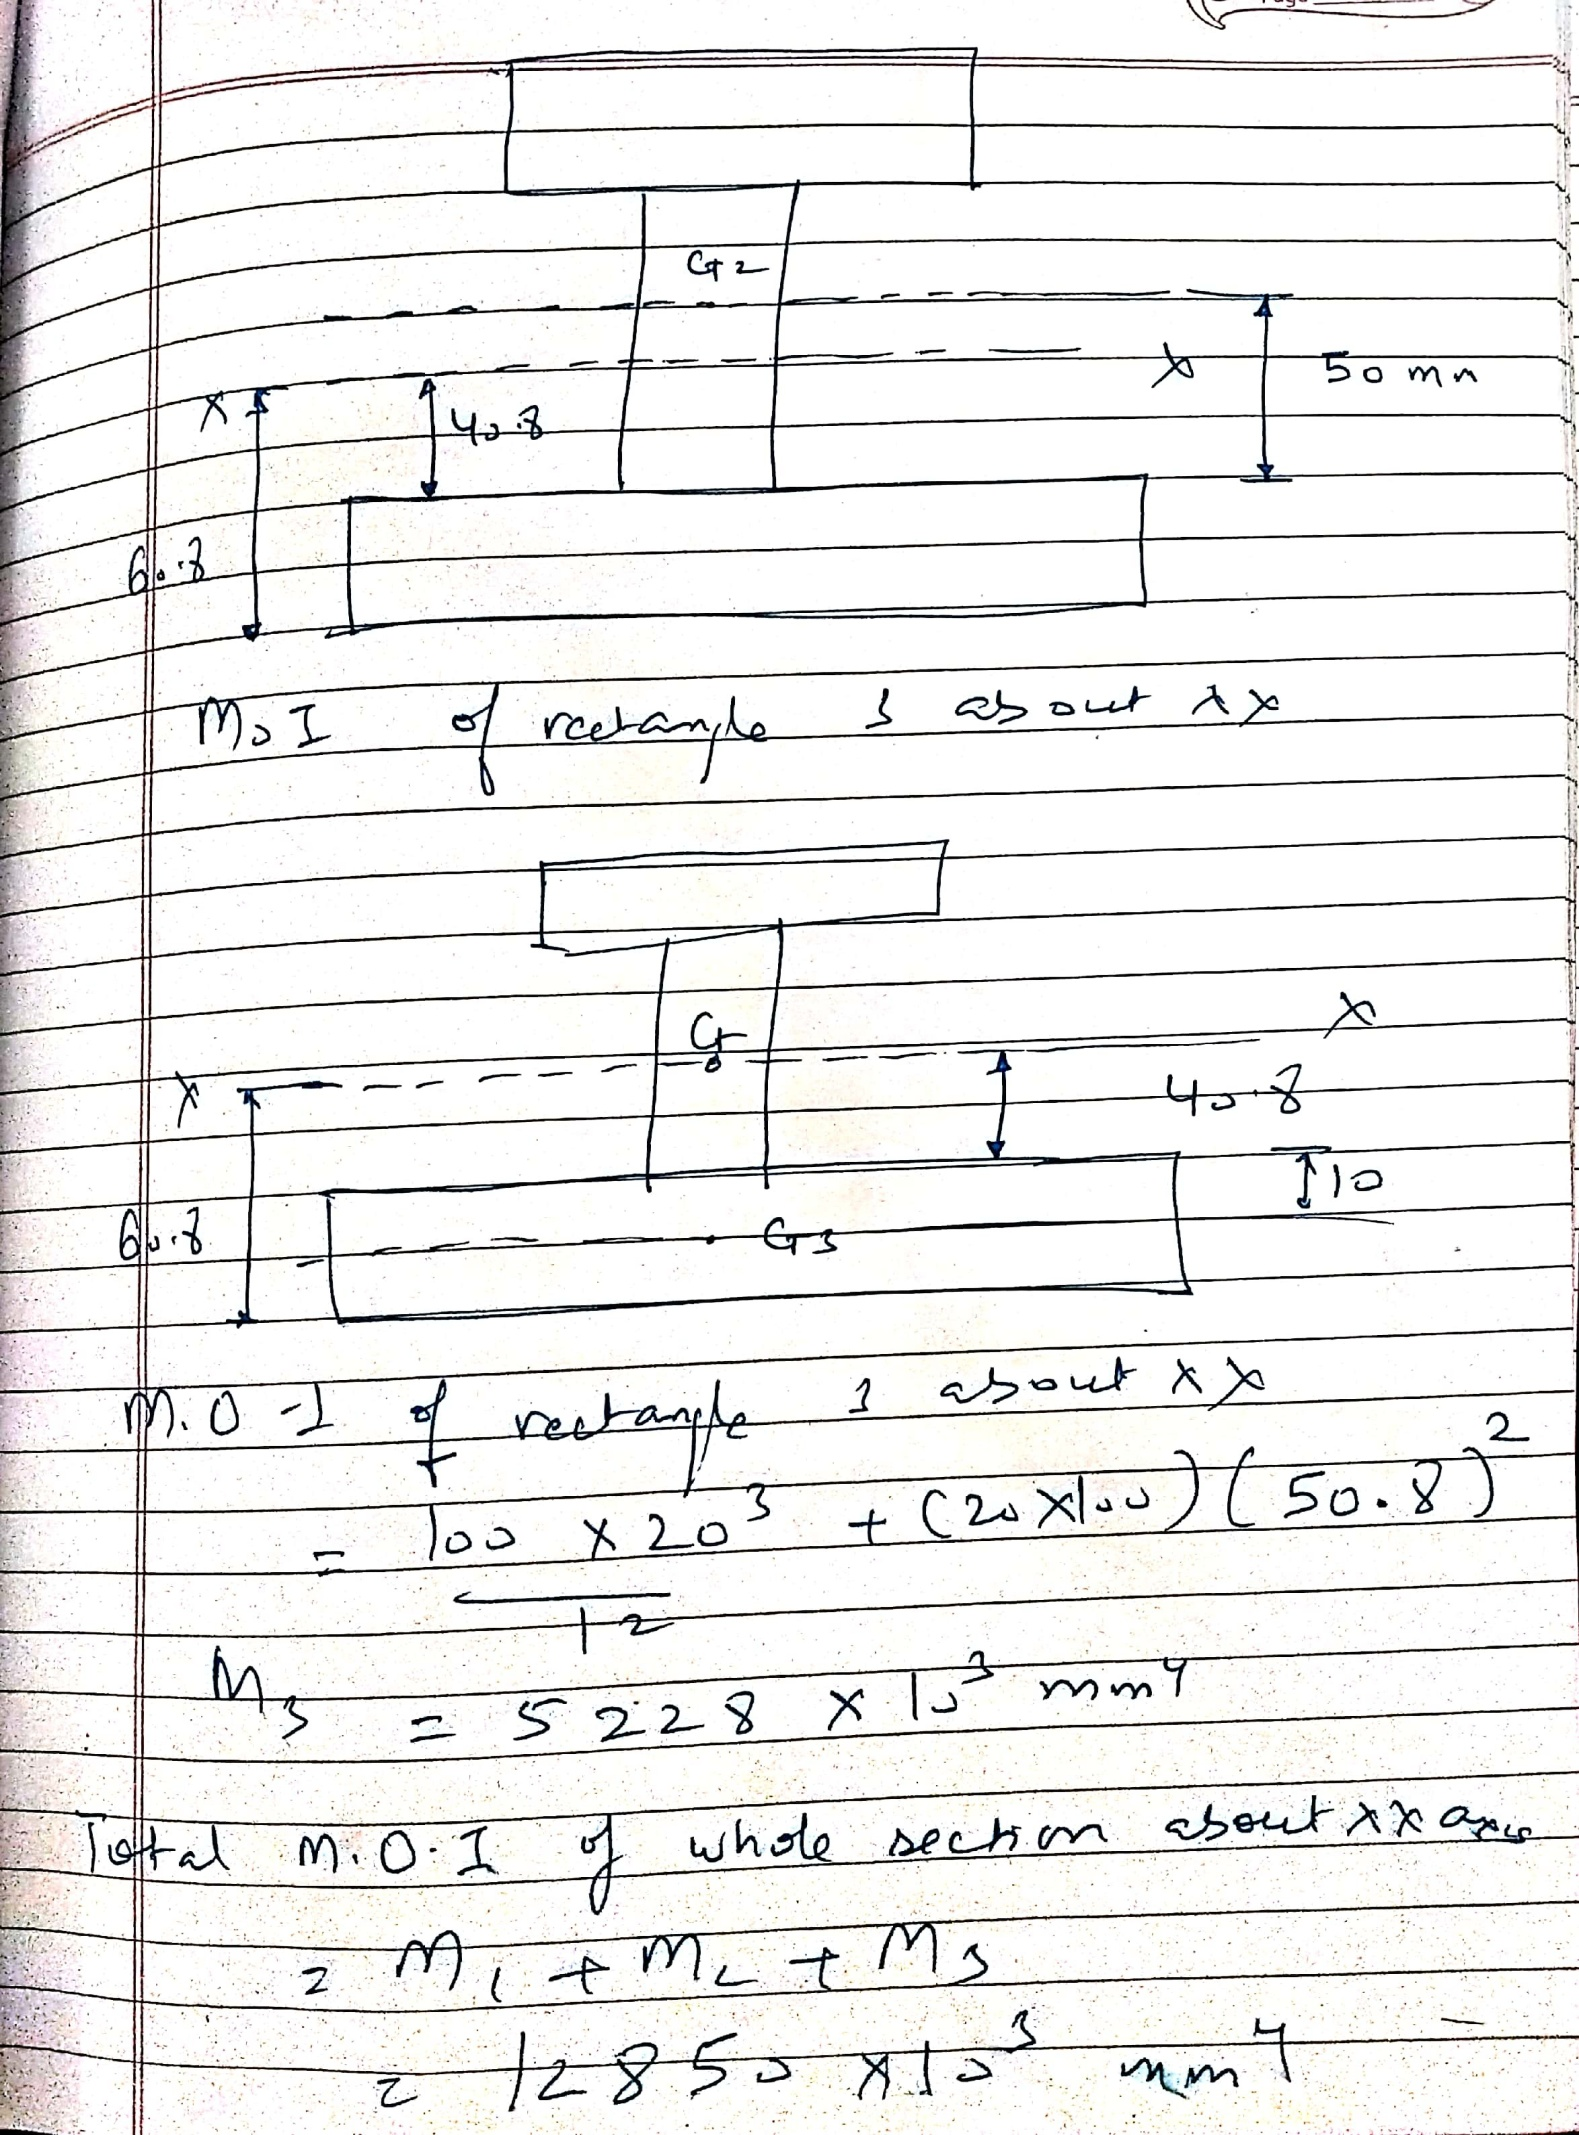 G2
X
50 mm
X
40.8
60.8
M.O.I of rectangle 3 about XX
G
X
X
40.8
10
60.8
G3
M.O-I of rectangle 3 about XX
= 100 X 20³ + (20 X 100) (50.8)²
12
M3 = 5228 X 10³ mm⁴
Total M.O.I of whole section about XX axis
= M1 + M2 + M3
= 12850 X 10³ mm⁴